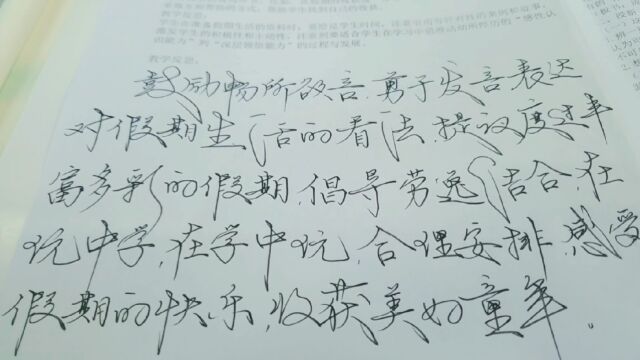 教学反思：
鼓励畅所欲言，勇于发言表达
对假期生活的看法，提议度过丰
富多彩的假期，倡导劳逸结合，在
玩中学，在学中玩，合理安排，感受
假期的快乐，收获美好童年。